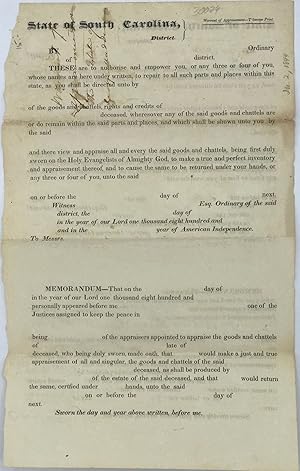 State of South Carolina,
Warrant of Appraisement—
District.
BY Ordinary
of district.
THESE are to authorise and empower you, or any three or four of you,
whose names are here under written, to repair to all such parts and places within this
state, as you shall be directed unto by
of the goods and chattels, rights and credits of
deceased, wheresoever any of the said goods and chattels are
or do remain within the said parts and places, and which shall be shown unto you, by
the said
and there view and appraise all and every the said goods and chattels, being first duly
sworn on the Holy Evangelists of Almighty God, to make a true and perfect inventory
and appraisement thereof, and to cause the same to be returned under your hands, or
any three or four of you, unto the said
on or before the day of next.
Witness Esq. Ordinary of the said
district, the day of
in the year of our Lord one thousand eight hundred and
and in the year of American Independence.
To Messrs.
MEMORANDUM—That on the day of
in the year of our Lord one thousand eight hundred and
personally appeared before me one of the
Justices assigned to keep the peace in
being of the appraisers appointed to appraise the goods and chattels
of late of
deceased, who being duly sworn, made oath, that would make a just and true
appraisement of all and singular, the goods and chattels of the said
deceased, as shall be produced by
of the estate of the said deceased, and that would return
the same, certified under hands, unto the said
on or before the day of
next.
Sworn the day and year above written, before me.